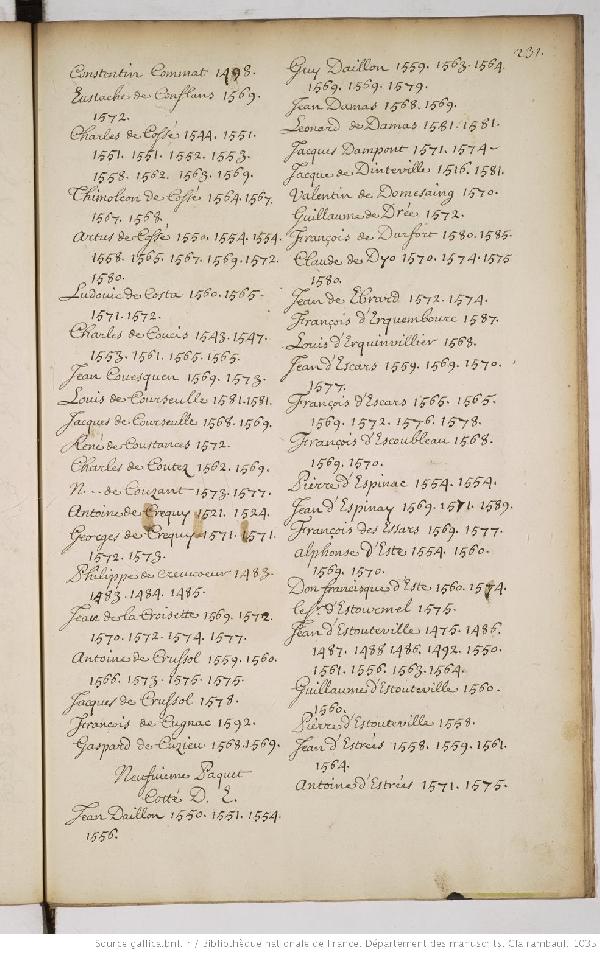 231.
Constentin Commat 1498.
Eustache de Conflans 1569.
1572.
Charles de Cossé 1544. 1551.
1551. 1551. 1552. 1553.
1558. 1562. 1563. 1569.
Thimoleon de Cossé 1564. 1567.
1567. 1568.
Artus de Cossé 1550. 1554. 1554.
1558. 1565. 1567. 1569. 1572.
1580.
Ludovic de Costa 1560. 1565.
1571. 1572.
Charles de Coucis 1543. 1547.
1553. 1561. 1565. 1565.
Jean Couesquen 1569. 1573.
Louis de Courseulle 1581. 1581.
Jacques de Courseulle 1568. 1569.
René de Coustances 1572.
Charles de Coutez 1562. 1569.
N... de Couzant 1573. 1577.
Antoine de Crequy 1521. 1524.
Georges de Crequy 1571. 1571.
1572. 1573.
Philippe de Crevcoeur 1483.
1483. 1484. 1485.
Jean de la Croisette 1569. 1572.
1570. 1572. 1574. 1577.
Antoine de Crussol 1559. 1560.
1566. 1573. 1575. 1575.
Jacques de Crussol 1578.
François de Cugnac 1592.
Gaspard de Cuzieu 1568. 1569.
Neufuieme Paquet
Cotté D. E.
Jean Daillon 1550. 1551. 1554.
1556.
Guy Daillon 1559. 1563. 1564.
1569. 1569. 1579.
Jean Damas 1568. 1569.
Leonard de Damas 1581. 1581.
Jacques Dampont 1571. 1574.
Jacque de Dinteville 1516. 1581.
Valentin de Domesaing 1570.
Guillaume de Drée 1572.
François de Durfort 1580. 1585.
Claude de Dyo 1570. 1574. 1575
1580.
Jean de Ebrard 1572. 1574.
François d'Erquembourc 1587.
Louis d'Erquinvillier 1568.
Jean d'Escars 1559. 1569. 1570.
1577.
François d'Escars 1565. 1565.
1569. 1572. 1576. 1578.
François d'Escoubleau 1568.
1569. 1570.
Pierre d'Espinac 1554. 1554.
Jean d'Espinay 1569. 1571. 1589.
François des Essars 1569. 1577.
Alphonse d'Este 1554. 1560.
1569. 1570.
Don francisque d'Este 1560. 1574.
le Sr. d'Estourmel 1575.
Jean d'Estouteville 1475. 1486.
1487. 1488 1486. 1492. 1550.
1561. 1556. 1563. 1564.
Guillaume d'Estouteville 1560.
1560.
Pierre d'Estouteville 1558.
Jean d'Estrées 1558. 1559. 1561.
1564.
Antoine d'Estrées 1571. 1575.
Source gallica.bnf.fr / Bibliothèque nationale de France. Département des manuscrits. Clairambault 1035